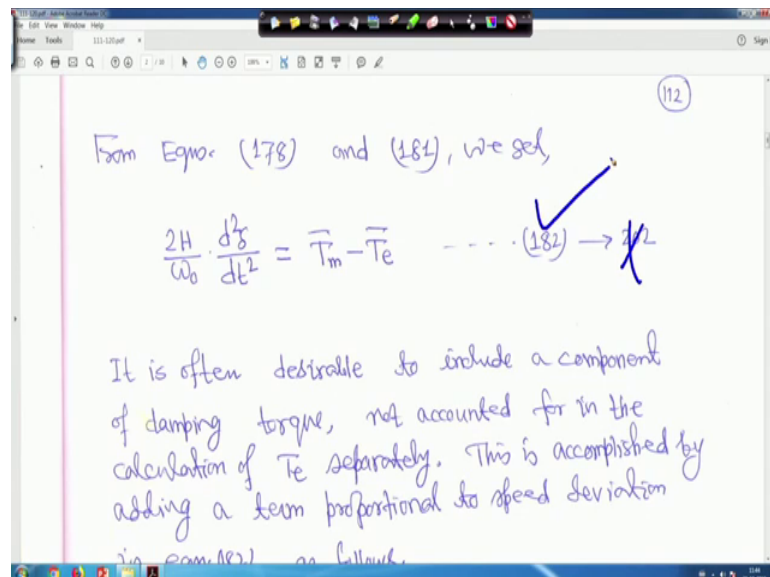 111-120.pdf - Adobe Acrobat Reader DC
File Edit View Window Help
Home Tools 111-120.pdf × Sign
2 / 10
112
From Eqns. (178) and (181), we get,
2H/ω₀ · d²δ/dt² = T̄m − T̄e - - - - · (182) →
It is often desirable to include a component
of damping torque, not accounted for in the
calculation of Te separately. This is accomplished by
adding a term proportional to speed deviation
in eqn.(182) as follows.